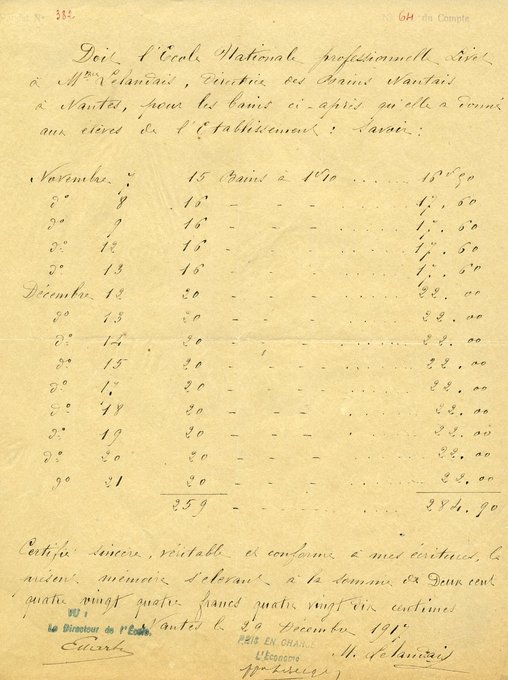 N° 382
N° 64 du Compte
Doit l'Ecole Nationale professionnelle Livet
à Mme Lelandais, Directrice des Bains Nantais
à Nantes, pour les bains ci-après qu'elle a donné
aux élèves de l'Etablissement : Savoir :
Novembre 7 15 Bains à 1f10 ..... 16f90
d° 8 16 - - - ..... 17.60
d° 9 16 - - - ..... 17.60
d° 12 16 - - - ..... 17.60
d° 13 16 - - - ..... 17.60
Décembre 12 20 - - - ..... 22.00
d° 13 20 - - - ..... 22.00
d° 14 20 - - - ..... 22.00
d° 15 20 - - - ..... 22.00
d° 17 20 - - - ..... 22.00
d° 18 20 - - - ..... 22.00
d° 19 20 - - - ..... 22.00
d° 20 20 - - - ..... 22.00
d° 21 20 - - - ..... 22.00
259 - - - ..... 284.90
Certifié sincère, véritable et conforme à mes écritures, le
présent mémoire s'élevant à la somme de Deux cent
quatre vingt quatre francs quatre vingt dix centimes
Nantes le 29 Décembre 1917
VU :
Le Directeur de l'École,
PRIS EN CHARGE
L'Économe
M. Lelandais